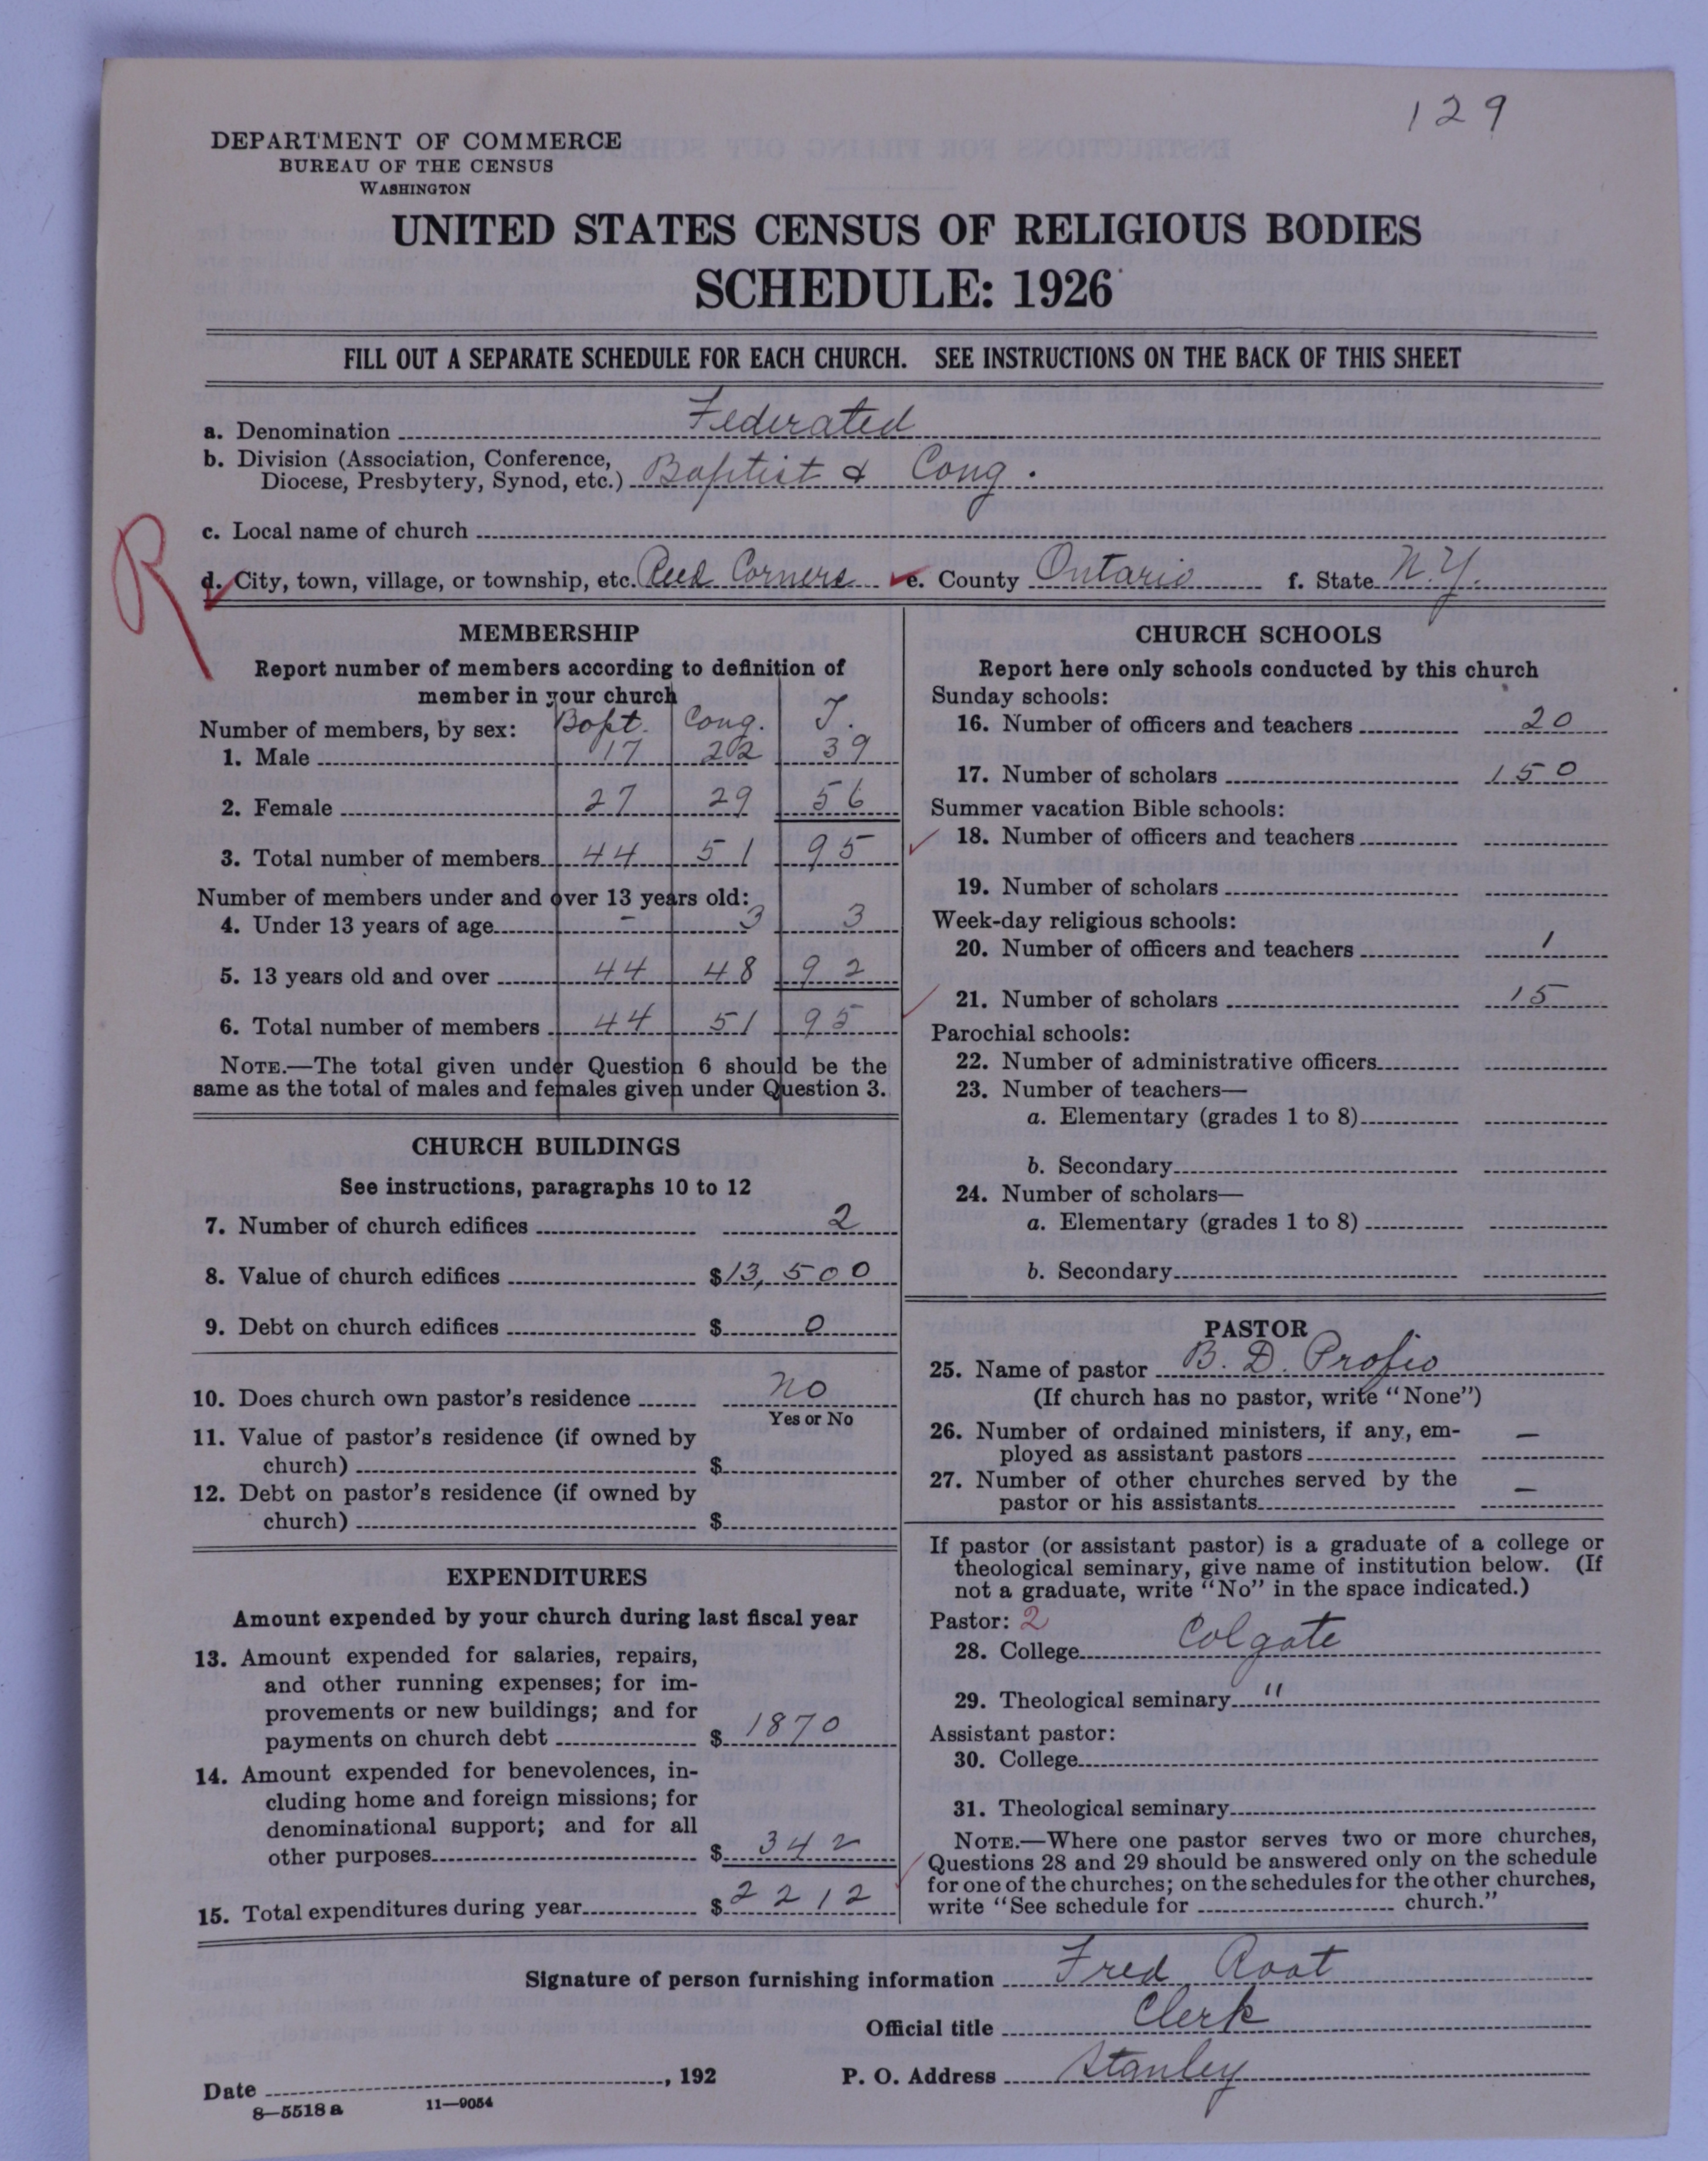 129
DEPARTMENT OF COMMERCE
BUREAU OF THE CENSUS
WASHINGTON
UNITED STATES CENSUS OF RELIGIOUS BODIES
SCHEDULE: 1926
FILL OUT A SEPARATE SCHEDULE FOR EACH CHURCH. SEE INSTRUCTIONS ON THE BACK OF THIS SHEET
a. Denomination Federated
b. Division (Association, Conference,
Diocese, Presbytery, Synod, etc.) Baptist & Cong.
c. Local name of church
R
d. City, town, village, or township, etc. Reed Corners e. County Ontario f. State N.Y.
MEMBERSHIP
Report number of members according to definition of
member in your church
Number of members, by sex: Bapt. Cong. T.
1. Male 17 22 39
2. Female 27 29 56
3. Total number of members 44 51 95
Number of members under and over 13 years old:
4. Under 13 years of age - 3 3
5. 13 years old and over 44 48 92
6. Total number of members 44 51 95
NOTE.—The total given under Question 6 should be the
same as the total of males and females given under Question 3.
CHURCH BUILDINGS
See instructions, paragraphs 10 to 12
7. Number of church edifices 2
8. Value of church edifices $13,500
9. Debt on church edifices $ 0
10. Does church own pastor's residence No
Yes or No
11. Value of pastor's residence (if owned by
church) $
12. Debt on pastor's residence (if owned by
church) $
EXPENDITURES
Amount expended by your church during last fiscal year
13. Amount expended for salaries, repairs,
and other running expenses; for im-
provements or new buildings; and for
payments on church debt $ 1870
14. Amount expended for benevolences, in-
cluding home and foreign missions; for
denominational support; and for all
other purposes $ 342
15. Total expenditures during year $ 2212
CHURCH SCHOOLS
Report here only schools conducted by this church
Sunday schools:
16. Number of officers and teachers 20
17. Number of scholars 150
Summer vacation Bible schools:
18. Number of officers and teachers
19. Number of scholars
Week-day religious schools:
20. Number of officers and teachers 1
21. Number of scholars 15
Parochial schools:
22. Number of administrative officers
23. Number of teachers—
a. Elementary (grades 1 to 8)
b. Secondary
24. Number of scholars—
a. Elementary (grades 1 to 8)
b. Secondary
PASTOR
25. Name of pastor B. D. Profio
(If church has no pastor, write "None")
26. Number of ordained ministers, if any, em-
ployed as assistant pastors —
27. Number of other churches served by the
pastor or his assistants —
If pastor (or assistant pastor) is a graduate of a college or
theological seminary, give name of institution below. (If
not a graduate, write "No" in the space indicated.)
Pastor: 2
28. College Colgate
29. Theological seminary "
Assistant pastor:
30. College
31. Theological seminary
NOTE.—Where one pastor serves two or more churches,
Questions 28 and 29 should be answered only on the schedule
for one of the churches; on the schedules for the other churches,
write "See schedule for church."
Signature of person furnishing information Fred Root
Official title Clerk
Date , 192 P. O. Address Stanley
8—5518 a 11—9054